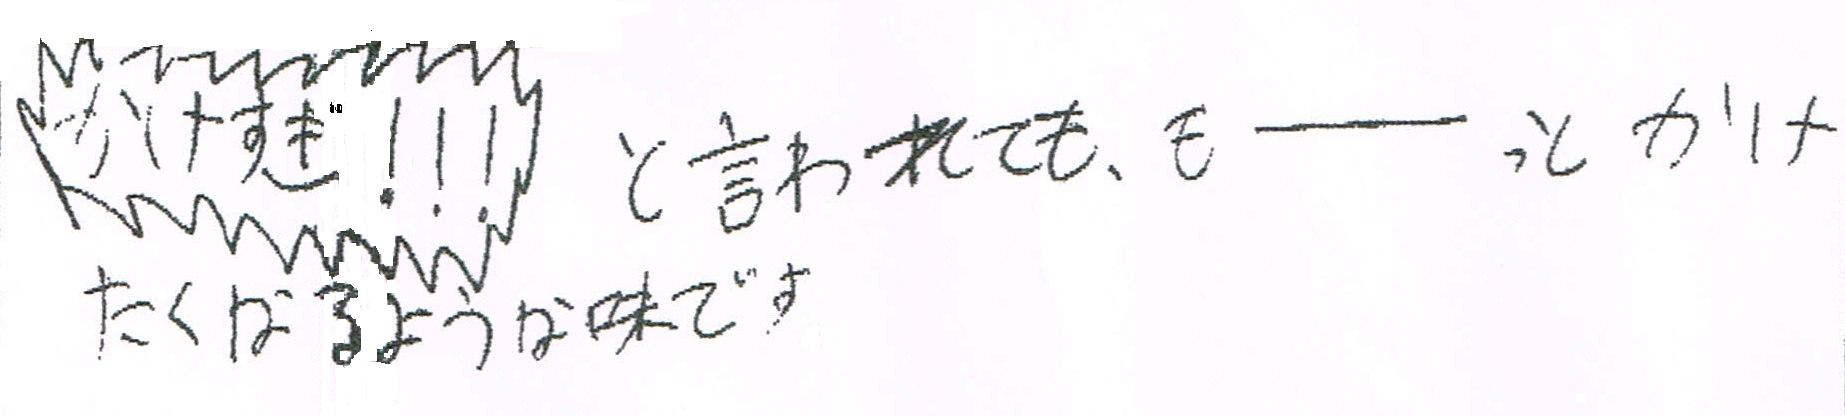 かけすぎ!!!と言われても、も――――っとかけ
たくなるような味です